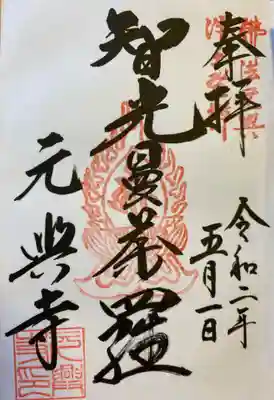 奉拝
令和二年
五月一日
智光曼荼羅
元興寺